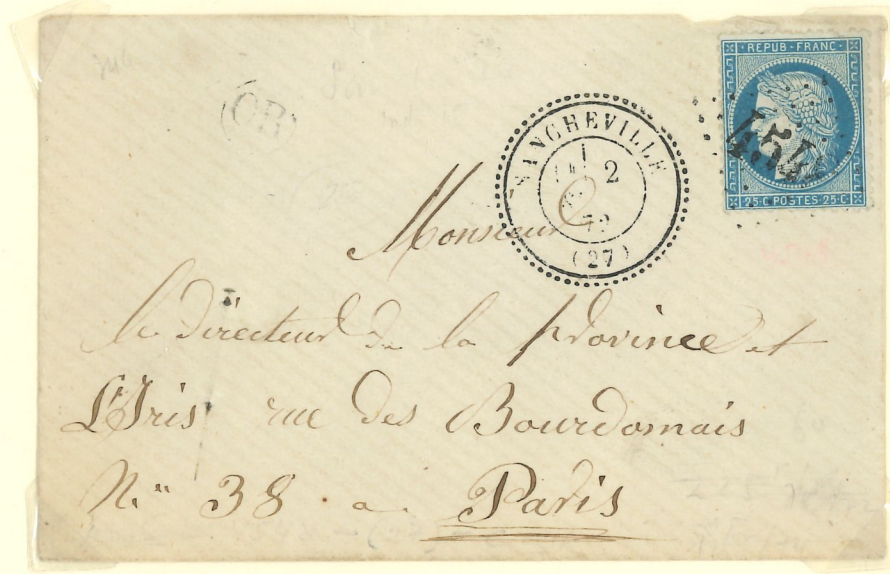 (OR)
REPUB·FRANC
25·C POSTES 25·C
SANCHEVILLE
2
72
(27)
Monsieur
le directeur de la Province et
L'Iris rue des Bourdonnais
N° 38 a Paris